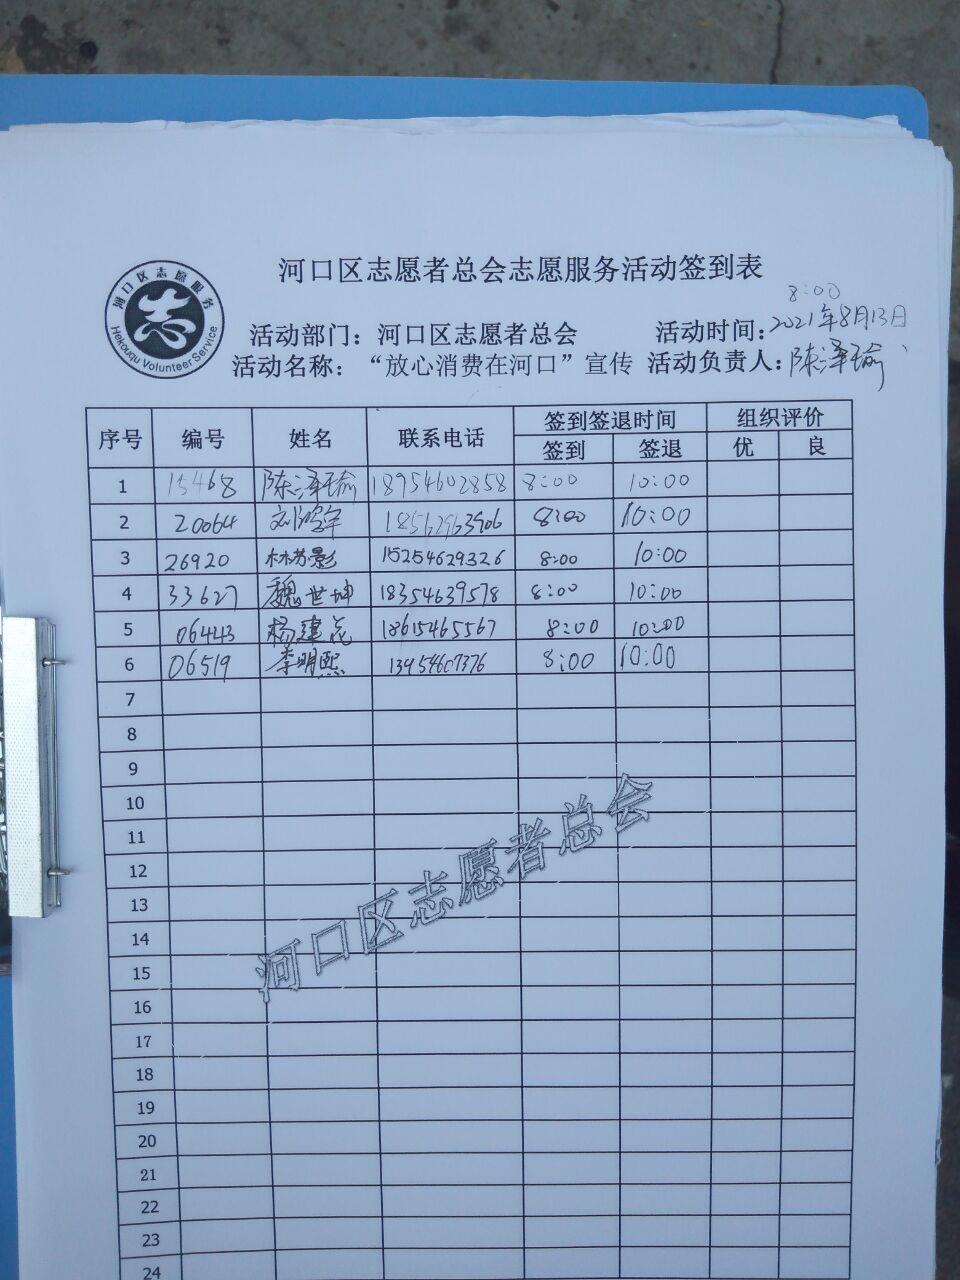 河口区志愿服务
志
Hekouqu Volunteer Service
河口区志愿者总会志愿服务活动签到表
8:00
活动部门：河口区志愿者总会 活动时间：2021年8月13日
活动名称：“放心消费在河口”宣传 活动负责人：陈泽瑜
序号 编号 姓名 联系电话 签到签退时间 组织评价
签到 签退 优 良
1 15468 陈泽瑜 18954602858 8:00 10:00
2 20064 刘鸿军 18562963906 8:00 10:00
3 26920 林苏影 15254629326 8:00 10:00
4 33627 魏世坤 18354639578 8:00 10:00
5 06443 杨建花 18615465567 8:00 10:00
6 06519 李明熙 13954607376 8:00 10:00
7
8
9
10
11
12
13
14
15
16
17
18
19
20
21
22
23
24
河口区志愿者总会